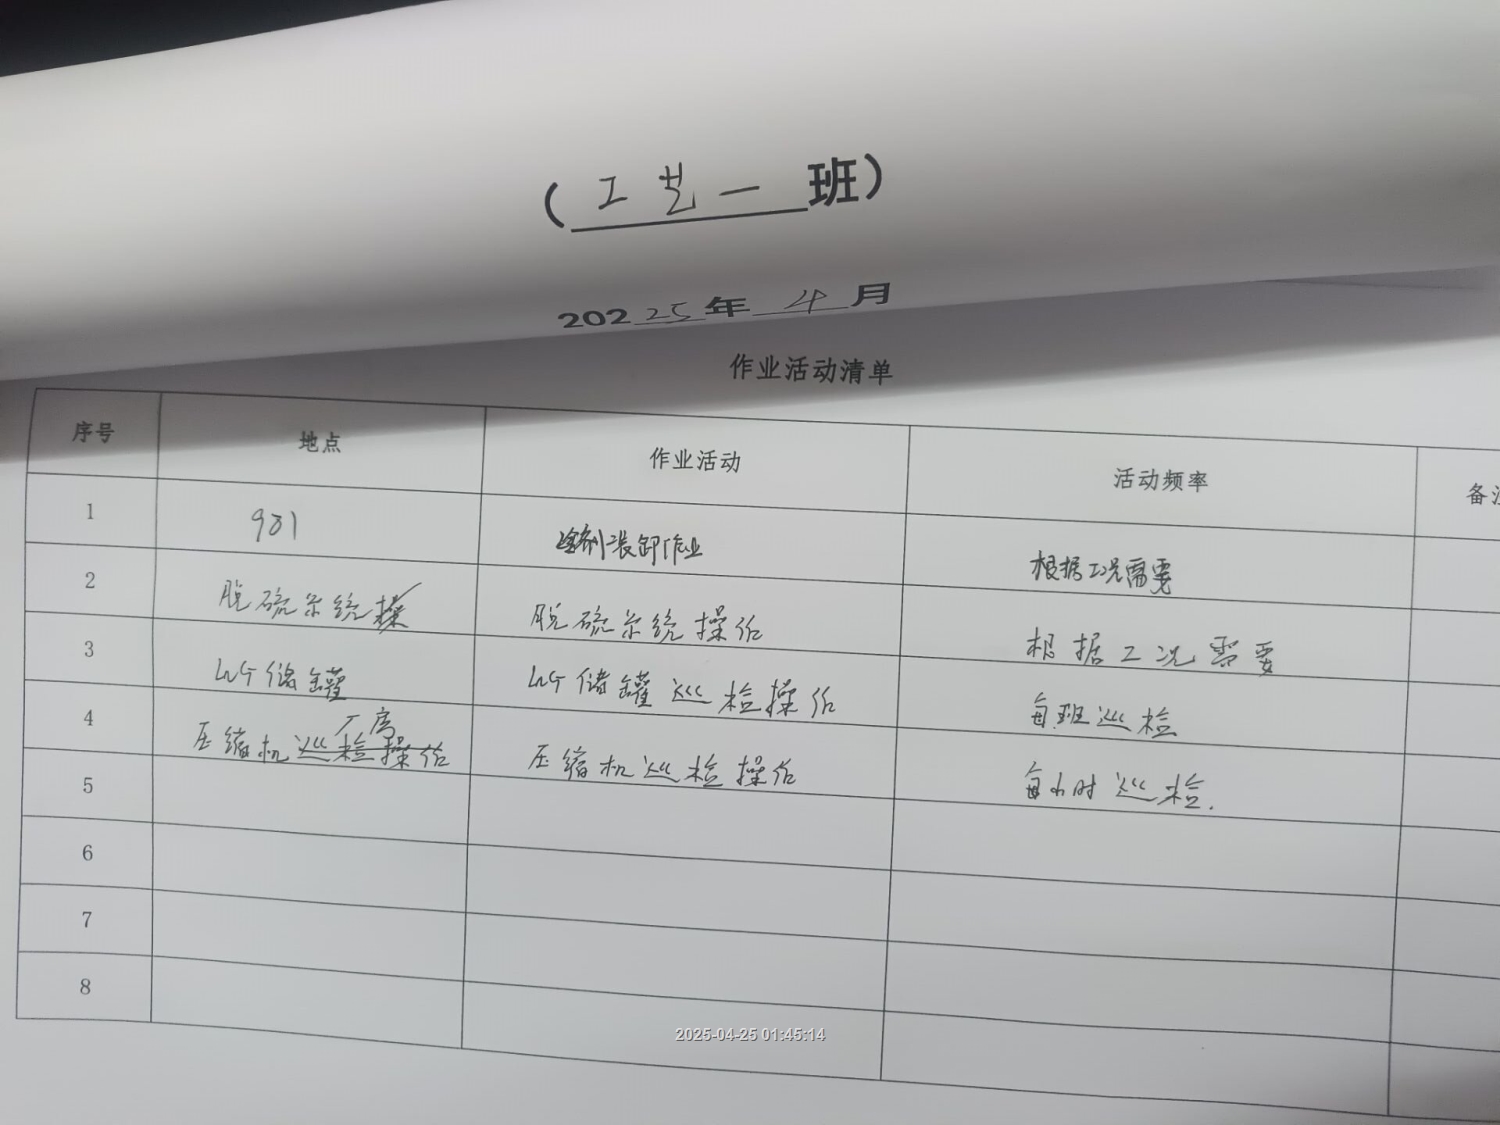 （工艺一班）
20225年4月
作业活动清单
序号 地点 作业活动 活动频率 备注
1 901 装卸作业 根据工况需要
2 脱硫系统 脱硫系统操作 根据工况需要
3 LNG储罐 LNG储罐巡检操作 每班巡检
4 压缩机厂房 压缩机巡检操作 每小时巡检.
5
6
7
8
2025-04-25 01:45:14